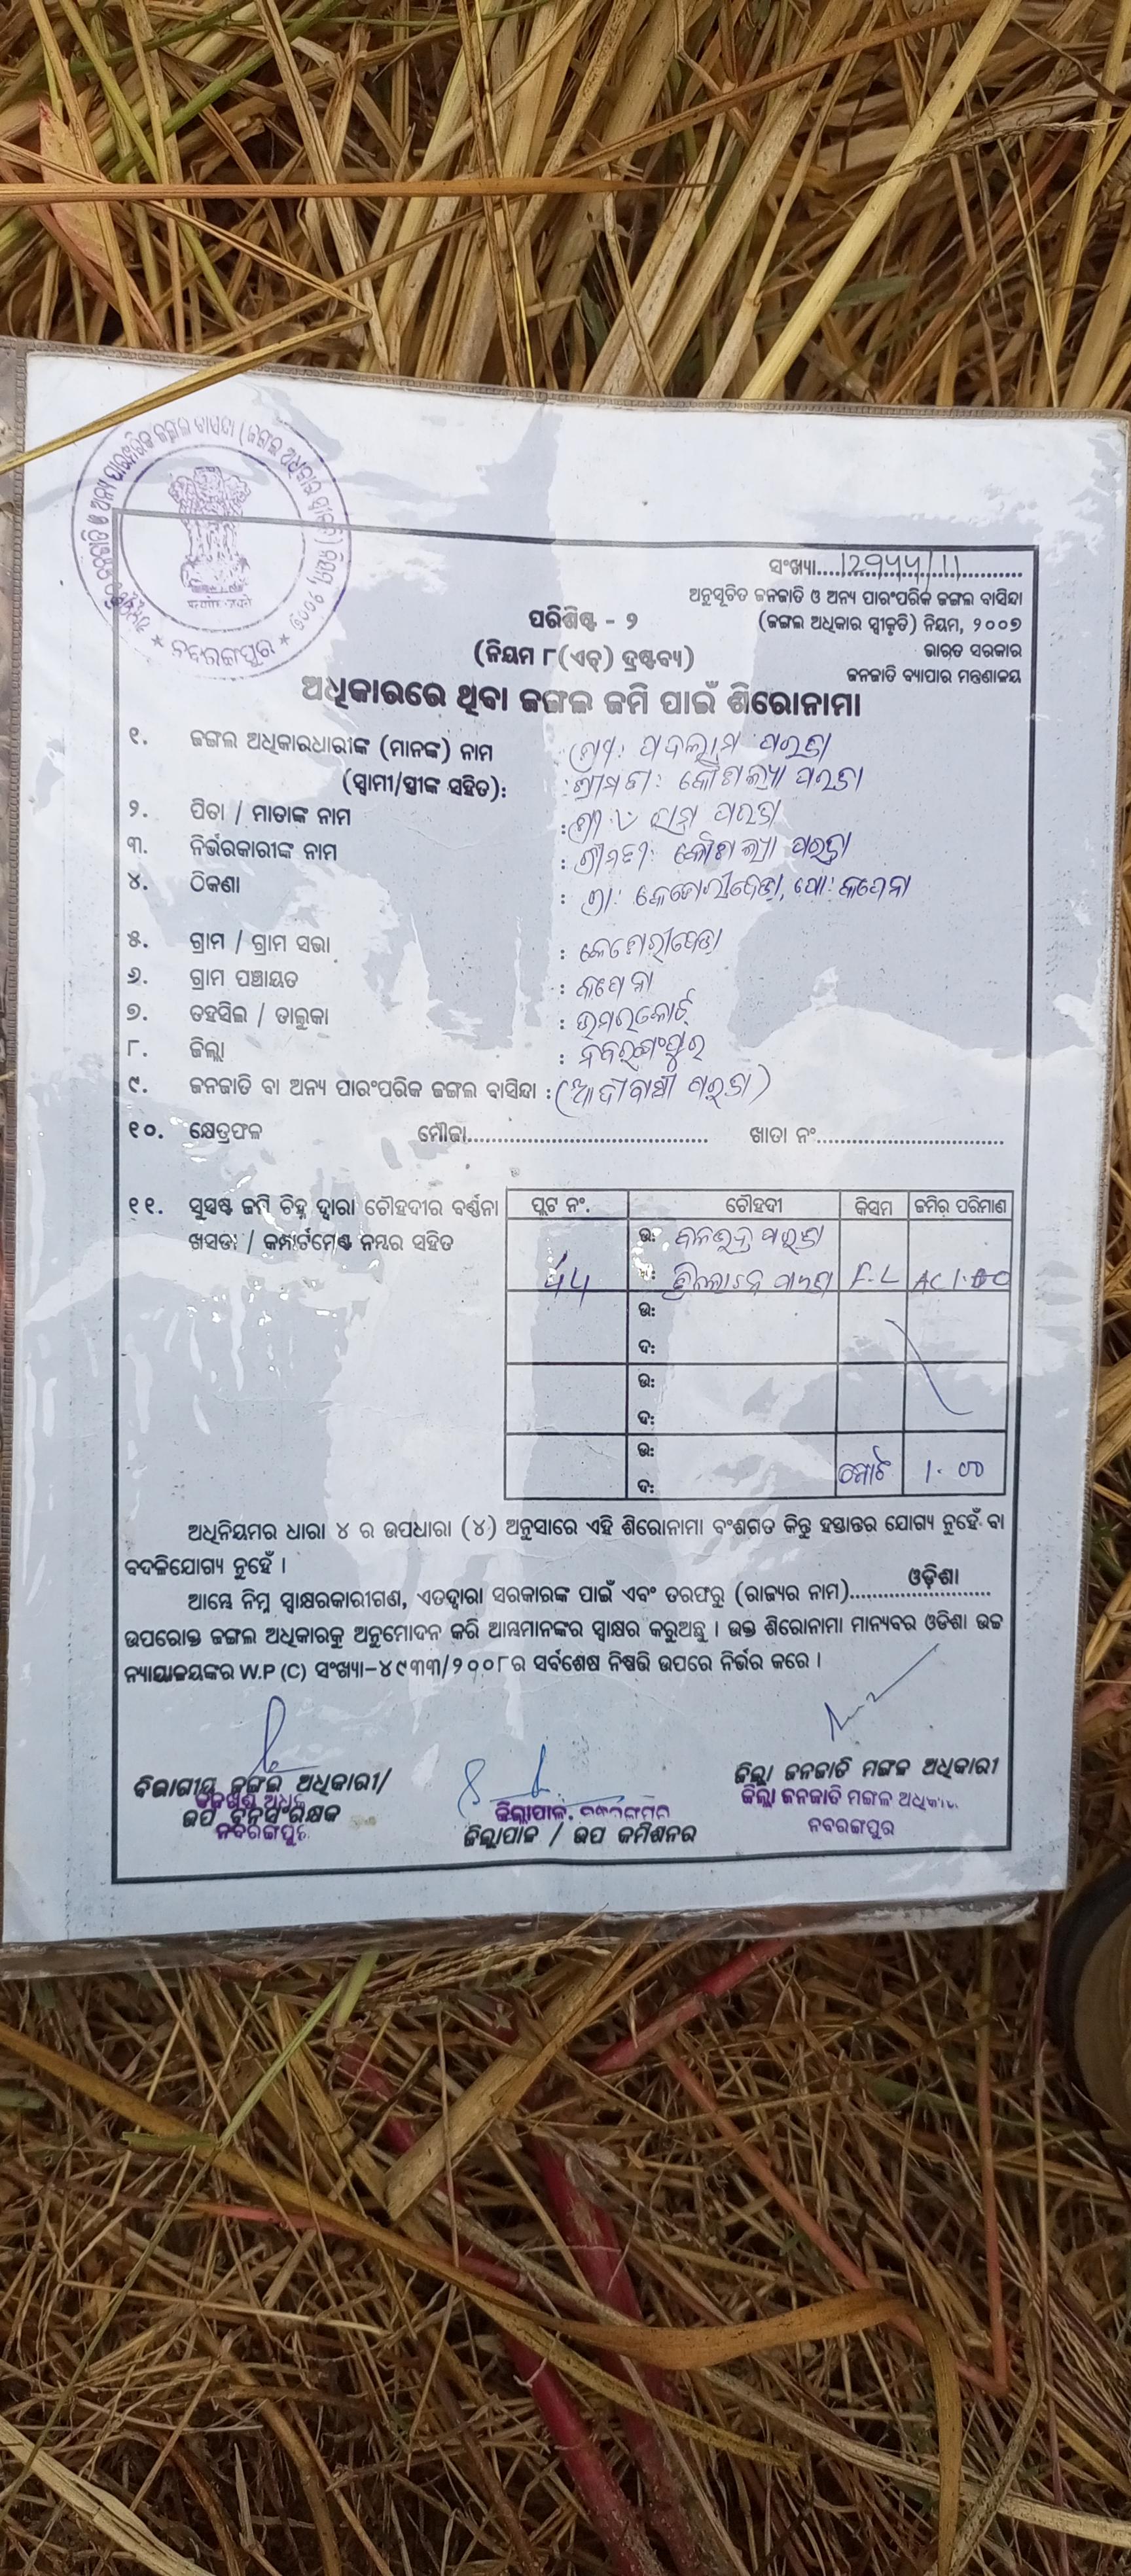 ନବରଙ୍ଗପୁର
ସଂଖ୍ୟା....................................
ଅନୁସୂଚିତ ଜନଜାତି ଓ ଅନ୍ୟ ପାରଂପରିକ ଜଙ୍ଗଲ ବାସିନ୍ଦା
(ଜଙ୍ଗଲ ଅଧିକାର ସ୍ୱୀକୃତି) ନିୟମ, ୨୦୦୭
ଭାରତ ସରକାର
ଜନଜାତି ବ୍ୟାପାର ମନ୍ତ୍ରଣାଳୟ
ପରିଶିଷ୍ଟ - ୨
(ନିୟମ ୮(ଏଚ୍) ଦ୍ରଷ୍ଟବ୍ୟ)
ଅଧିକାରରେ ଥିବା ଜଙ୍ଗଲ ଜମି ପାଇଁ ଶିରୋନାମା
୧. ଜଙ୍ଗଲ ଅଧିକାରଧାରୀଙ୍କ (ମାନଙ୍କ) ନାମ
(ସ୍ୱାମୀ/ସ୍ତ୍ରୀଙ୍କ ସହିତ): ଶ୍ରୀମତୀ: କୌଶଲ୍ୟା ପରଜା
୨. ପିତା / ମାତାଙ୍କ ନାମ
୩. ନିର୍ଭରକାରୀଙ୍କ ନାମ : ଶ୍ରୀମତୀ: କୌଶଲ୍ୟା ପରଜା
୪. ଠିକଣା
୫. ଗ୍ରାମ / ଗ୍ରାମ ସଭା
୬. ଗ୍ରାମ ପଞ୍ଚାୟତ :
୭. ତହସିଲ / ତାଲୁକା : ଉମରକୋଟ
୮. ଜିଲ୍ଲା : ନବରଙ୍ଗପୁର
୯. ଜନଜାତି ବା ଅନ୍ୟ ପାରଂପରିକ ଜଙ୍ଗଲ ବାସିନ୍ଦା : (ଆଦୀବାସୀ ପରଜା)
୧୦. କ୍ଷେତ୍ରଫଳ ମୌଜା........................................ ଖାତା ନଂ................................
୧୧. ସୁସ୍ପଷ୍ଟ ଜମି ଚିହ୍ନ ଦ୍ୱାରା ଚୌହଦୀର ବର୍ଣ୍ଣନା
ଖସଡା / କମ୍ପାର୍ଟମେଣ୍ଟ ନମ୍ବର ସହିତ
ପ୍ଲଟ ନଂ. ଚୌହଦୀ କିସମ ଜମିର ପରିମାଣ
ଉ:
F.L AC 1.00
ଉ:
ଦ:
ଉ:
ଦ:
ଉ:
ଦ: ମୋଟ 1.00
ଅଧିନିୟମର ଧାରା ୪ ର ଉପଧାରା (୪) ଅନୁସାରେ ଏହି ଶିରୋନାମା ବଂଶଗତ କିନ୍ତୁ ହସ୍ତାନ୍ତର ଯୋଗ୍ୟ ନୁହେଁ ବା
ବଦଳିଯୋଗ୍ୟ ନୁହେଁ ।
ଆମ୍ଭେ ନିମ୍ନ ସ୍ୱାକ୍ଷରକାରୀଗଣ, ଏତଦ୍ଦ୍ୱାରା ସରକାରଙ୍କ ପାଇଁ ଏବଂ ତରଫରୁ (ରାଜ୍ୟର ନାମ)......ଓଡ଼ିଶା......
ଉପରୋକ୍ତ ଜଙ୍ଗଲ ଅଧିକାରକୁ ଅନୁମୋଦନ କରି ଆମ୍ଭମାନଙ୍କର ସ୍ୱାକ୍ଷର କରୁଅଛୁ । ଉକ୍ତ ଶିରୋନାମା ମାନ୍ୟବର ଓଡିଶା ଉଚ୍ଚ
ନ୍ୟାୟାଳୟଙ୍କର W.P (C) ସଂଖ୍ୟା-୪୯୩୩/୨୦୦୮ର ସର୍ବଶେଷ ନିଷ୍ପତ୍ତି ଉପରେ ନିର୍ଭର କରେ ।
ବିଭାଗୀୟ ଜଙ୍ଗଲ ଅଧିକାରୀ/
ଉପ ବନସଂରକ୍ଷକ
ନବରଙ୍ଗପୁର
ଜିଲ୍ଲାପାଳ,
ଜିଲ୍ଲାପାଳ / ଉପ କମିଶନର
ଜିଲ୍ଲା ଜନଜାତି ମଙ୍ଗଳ ଅଧିକାରୀ
ଜିଲ୍ଲା ଜନଜାତି ମଙ୍ଗଳ
ନବରଙ୍ଗପୁର